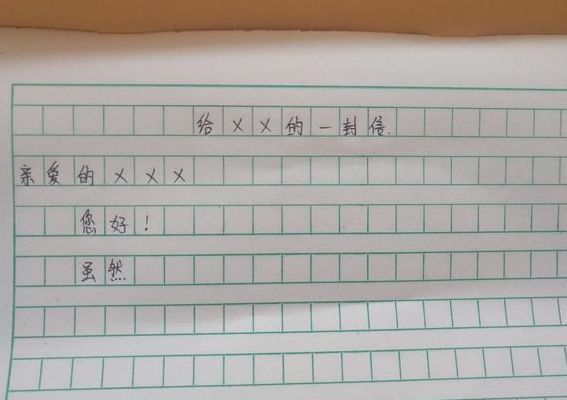 给××的一封信.
亲爱的×××
您好！
虽然